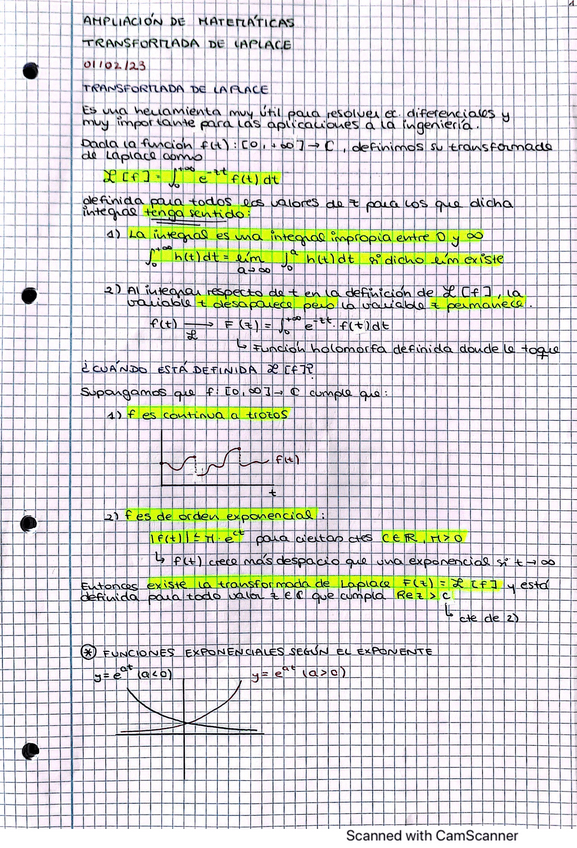 AMPLIACIÓN DE MATEMÁTICAS
TRANSFORMADA DE LAPLACE
01/02/23
TRANSFORMADA DE LAPLACE
Es una herramienta muy útil para resolver ec. diferenciales y
muy importante para las aplicaciones a la ingeniería.
Dada la función f(t): [0, +∞] → ℂ, definimos su transformada
de Laplace como
ℒ[f] = ∫₀^{+∞} e^{-zt} f(t) dt
definida para todos los valores de z para los que dicha
integral tenga sentido:
1) La integral es una integral impropia entre 0 y ∞
∫₀^{+∞} h(t) dt = lím_{a→∞} ∫₀^a h(t) dt si dicho lím existe
2) Al integrar respecto de t en la definición de ℒ[f], la
variable t desaparece pero la variable z permanece.
f(t) →_ℒ F(z) = ∫₀^{+∞} e^{-zt} · f(t) dt
↳ Función holomorfa definida donde le toque
¿CUÁNDO ESTÁ DEFINIDA ℒ[f]?
Supongamos que f: [0, ∞] → ℂ cumple que:
1) f es continua a trozos
f(t)
t
2) f es de orden exponencial:
|f(t)| ≤ M · e^{ct} para ciertas ctes C ∈ ℝ, M > 0
↳ f(t) crece más despacio que una exponencial si t → ∞
Entonces existe la transformada de Laplace F(z) = ℒ[f] y está
definida para todo valor z ∈ ℂ que cumpla Re z > c
↳ cte de 2)
* FUNCIONES EXPONENCIALES SEGÚN EL EXPONENTE
y = e^{at} (a<0) y = e^{at} (a>0)
Scanned with CamScanner